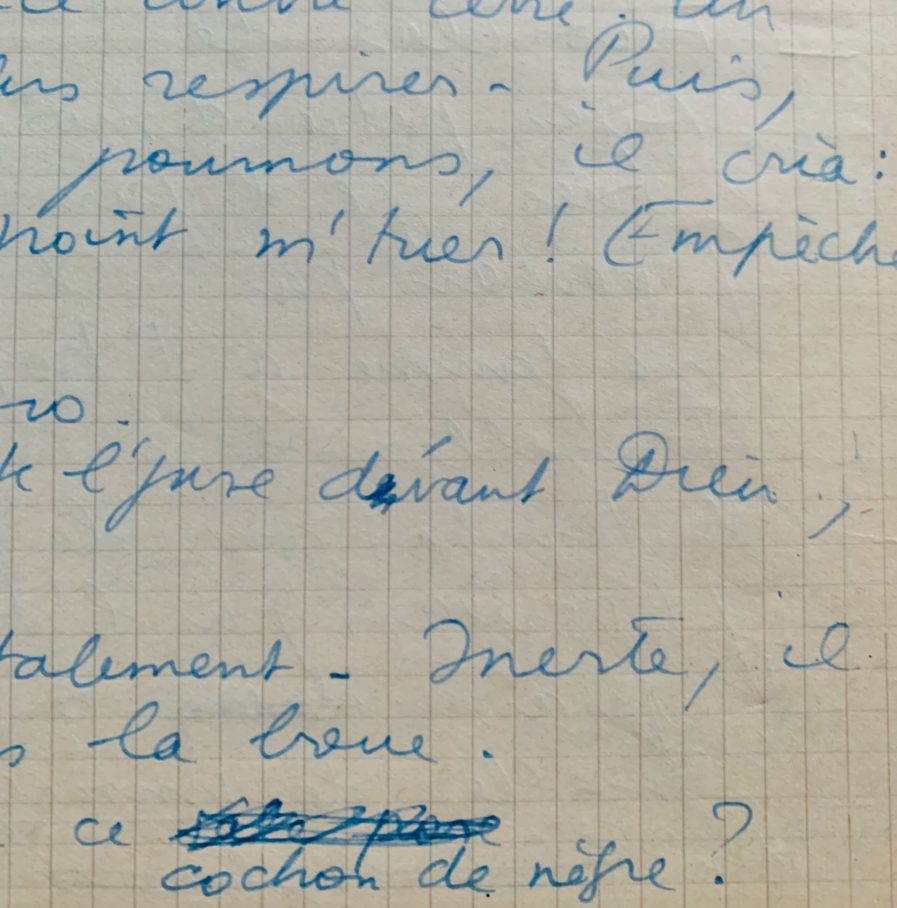 contre terre. Un
respirer. Puis,
poumons, il cria:
point m'tuer! Empêche
l'jure devant Dieu,
talement. Inerte, il
la boue.
ce
cochon de nègre?